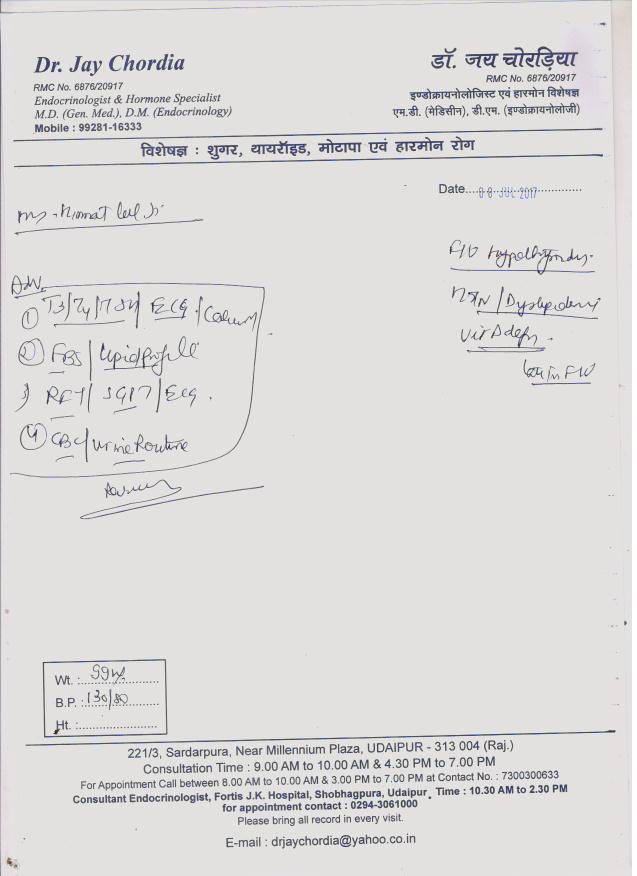 Dr. Jay Chordia
RMC No. 6876/20917
Endocrinologist & Hormone Specialist
M.D. (Gen. Med.), D.M. (Endocrinology)
Mobile : 99281-16333
डॉ. जय चोरड़िया
RMC No. 6876/20917
इण्डोक्रायनोलोजिस्ट एवं हारमोन विशेषज्ञ
एम.डी. (मेडिसीन), डी.एम. (इण्डोक्रायनोलोजी)
विशेषज्ञ : शुगर, थायरॉइड, मोटापा एवं हारमोन रोग
Date....08 JUL 2017............
F/U
HTN / Dyslipidemia
Vit D defn.
Adv.
① T3/T4/TSH / ECG / Calcium
② FBS / Lipid Profile
3) RFT / SGPT / ECG.
④ CBC / Urine Routine
Wt. :
B.P. : 130/80
Ht. :
221/3, Sardarpura, Near Millennium Plaza, UDAIPUR - 313 004 (Raj.)
Consultation Time : 9.00 AM to 10.00 AM & 4.30 PM to 7.00 PM
For Appointment Call between 8.00 AM to 10.00 AM & 3.00 PM to 7.00 PM at Contact No. : 7300300633
Consultant Endocrinologist, Fortis J.K. Hospital, Shobhagpura, Udaipur, Time : 10.30 AM to 2.30 PM
for appointment contact : 0294-3061000
Please bring all record in every visit.
E-mail : drjaychordia@yahoo.co.in